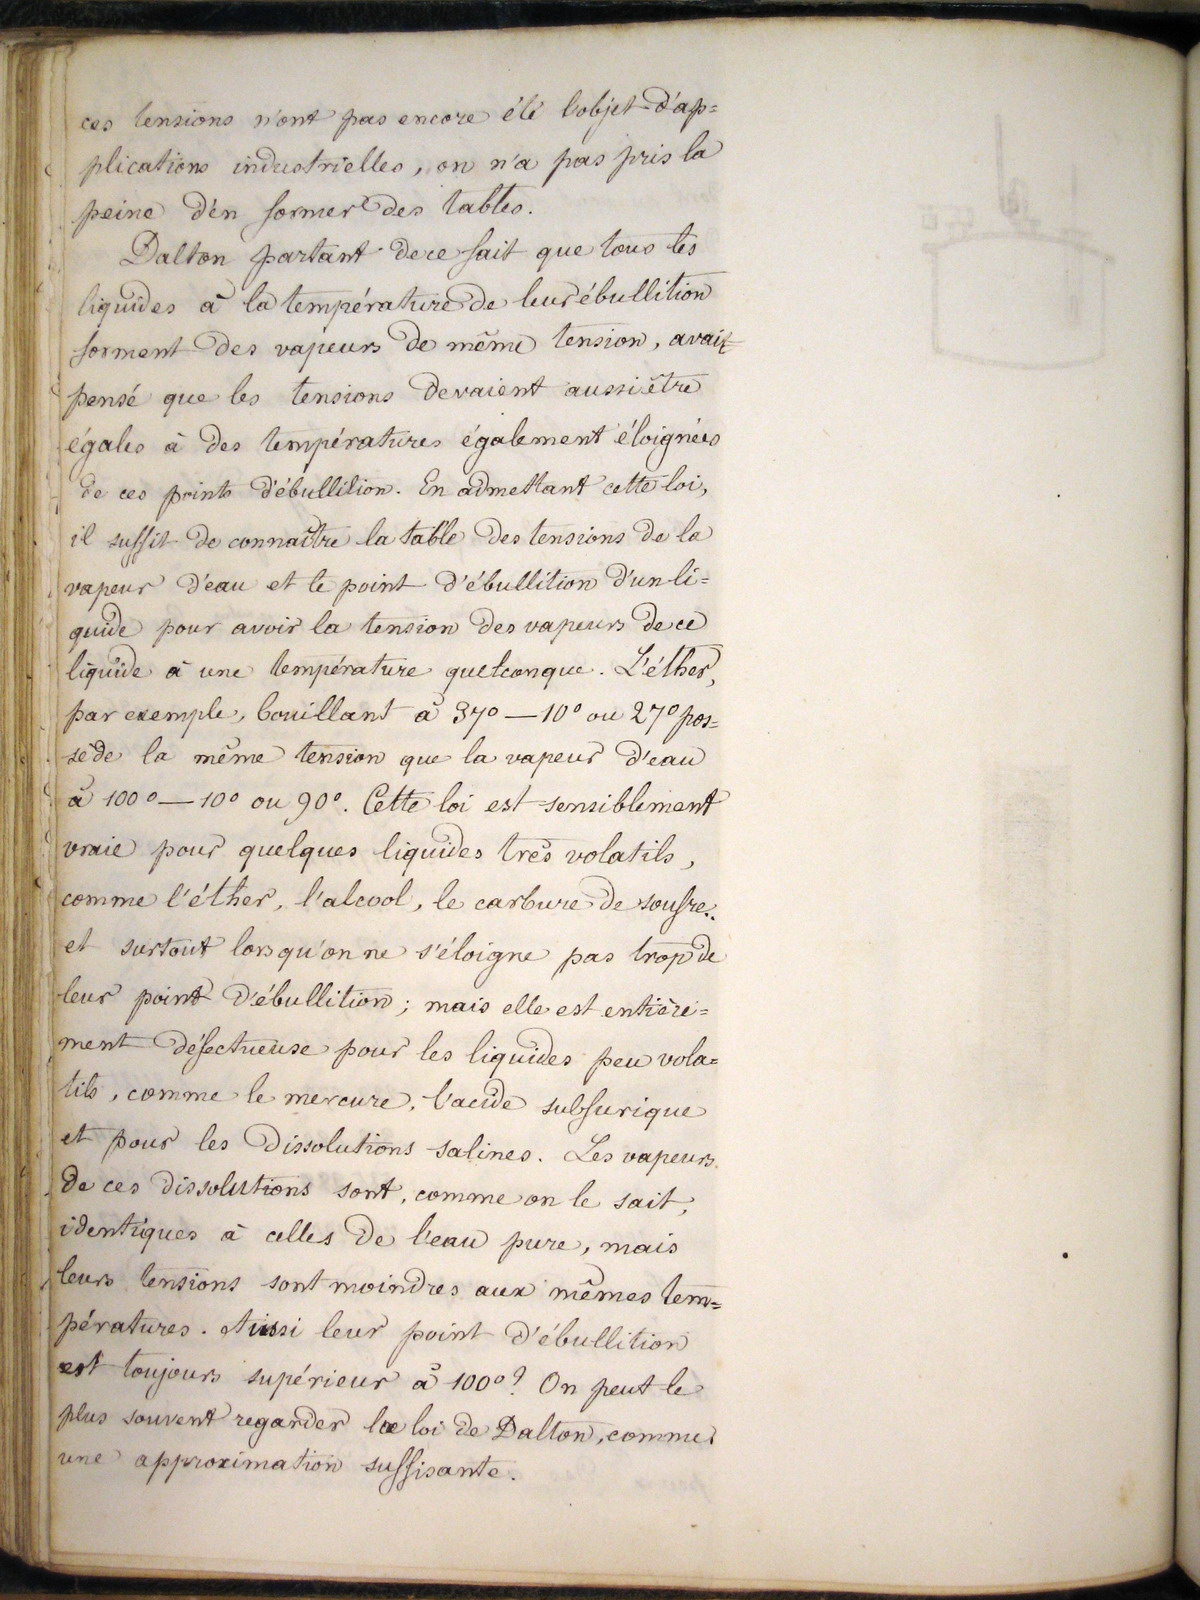 ces tensions n'ont pas encore été l'objet d'ap=
plications industrielles, on n'a pas pris la
peine d'en former des tables.
Dalton partant de ce fait que tous les
liquides à la température de leur ébullition
forment des vapeurs de même tension, avait
pensé que les tensions devaient aussi être
égales à des températures également éloignées
de ces points d'ébullition. En admettant cette loi,
il suffit de connaître la table des tensions de la
vapeur d'eau et le point d'ébullition d'un li=
quide pour avoir la tension des vapeurs de ce
liquide à une température quelconque. L'éther,
par exemple, bouillant à 37° — 10° ou 27° pos=
sède la même tension que la vapeur d'eau
à 100° — 10° ou 90°. Cette loi est sensiblement
vraie pour quelques liquides très volatils,
comme l'éther, l'alcool, le carbure de soufre..
et surtout lorsqu'on ne s'éloigne pas trop de
leur point d'ébullition; mais elle est entière=
ment défectueuse pour les liquides peu vola=
tils, comme le mercure, l'acide sulfurique
et pour les dissolutions salines. Les vapeurs
de ces dissolutions sont, comme on le sait,
identiques à celles de l'eau pure, mais
leurs tensions sont moindres aux mêmes tem=
pératures. Aussi leur point d'ébullition
est toujours supérieur à 100°? On peut le
plus souvent regarder la loi de Dalton, comme
une approximation suffisante.